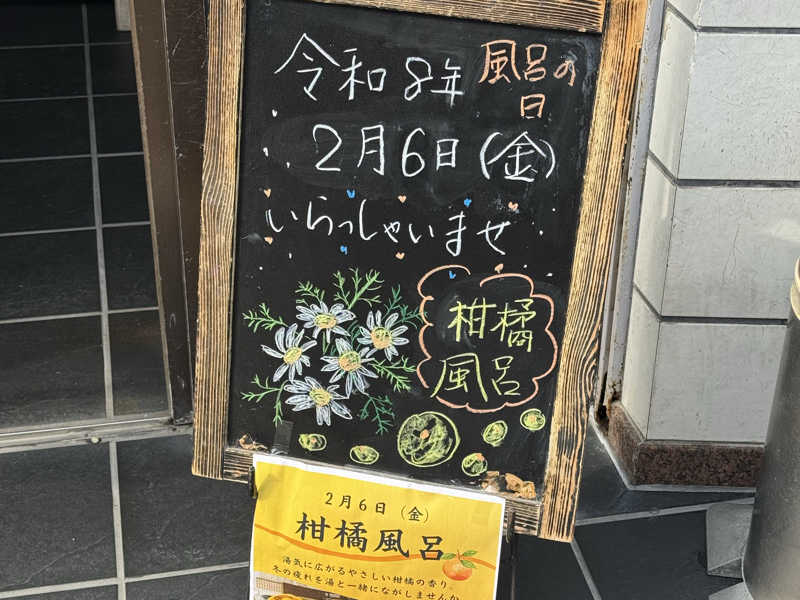 令和8年
風呂の
日
2月6日(金)
いらっしゃいませ
柑橘
風呂
2月6日(金)
柑橘風呂
湯気に広がるやさしい柑橘の香り。
冬の疲れを湯と一緒にながしませんか